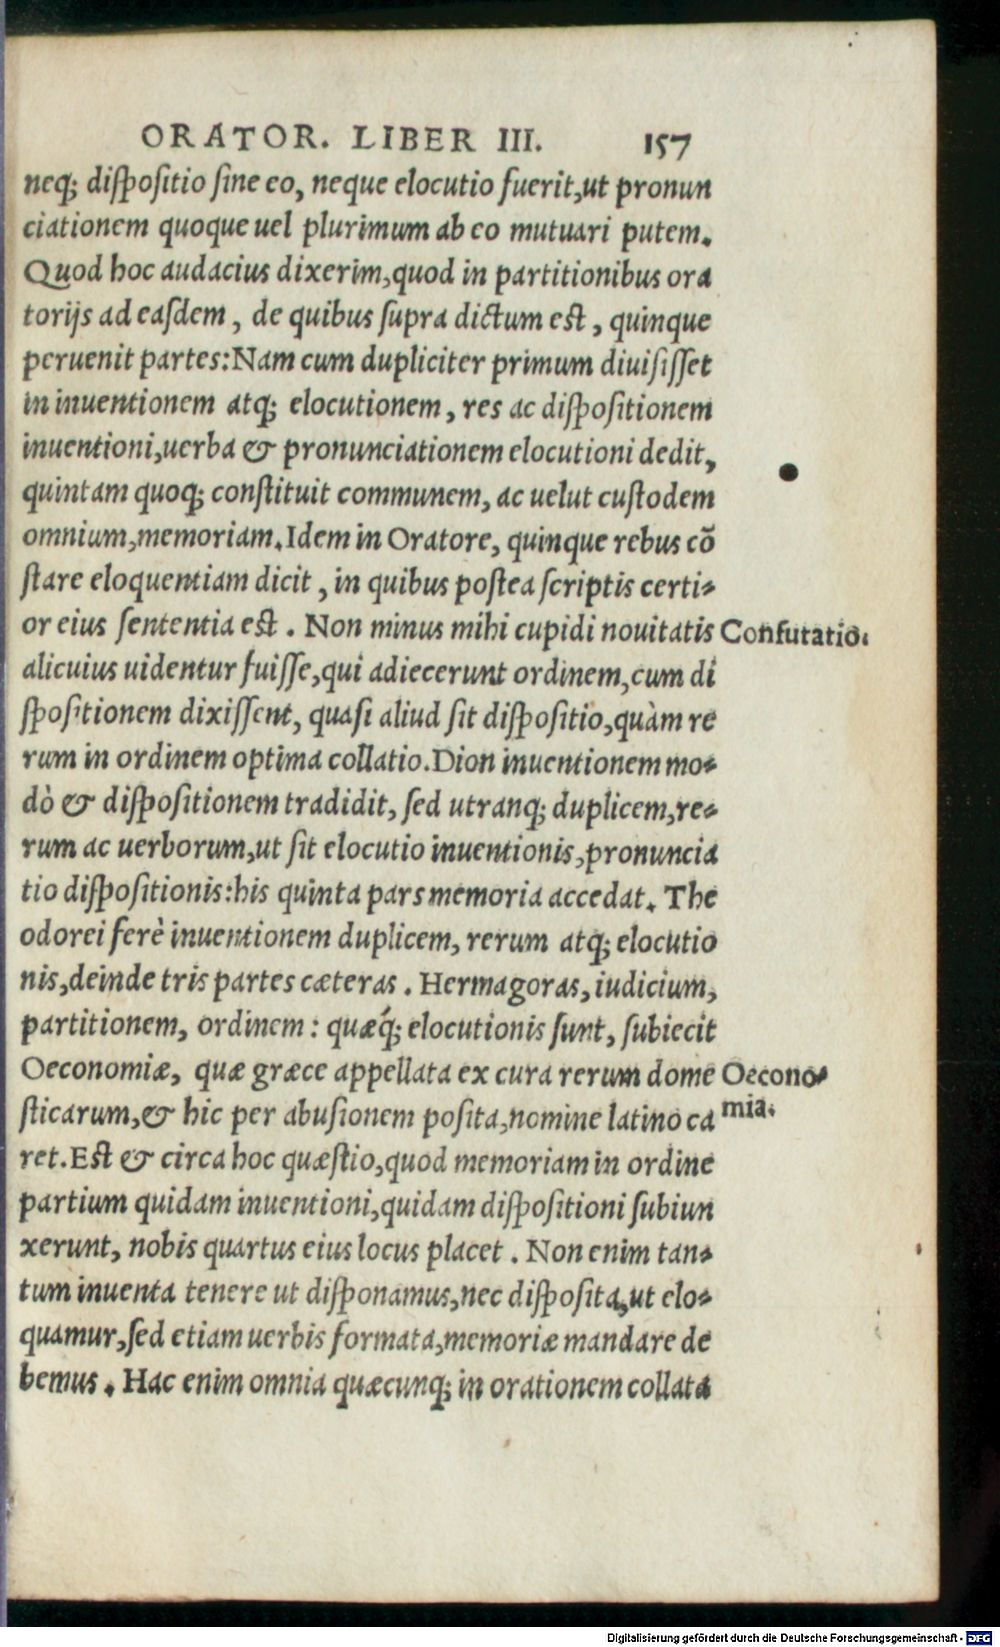 ORATOR. LIBER III. 157
neq; dispositio sine eo, neque elocutio fuerit,ut pronun
ciationem quoque uel plurimum ab eo mutuari putem.
Quod hoc audacius dixerim,quod in partitionibus ora
torijs ad easdem, de quibus supra dictum est, quinque
peruenit partes:Nam cum dupliciter primum diuisisset
in inuentionem atq; elocutionem, res ac dispositionem
inuentioni,uerba & pronunciationem elocutioni dedit,
quintam quoq; constituit communem, ac uelut custodem
omnium,memoriam.Idem in Oratore, quinque rebus cõ
stare eloquentiam dicit, in quibus postea scriptis certi-
or eius sententia est. Non minus mihi cupidi nouitatis Confutatio.
alicuius uidentur fuisse,qui adiecerunt ordinem,cum di
spositionem dixissent, quasi aliud sit dispositio,quàm re
rum in ordinem optima collatio.Dion inuentionem mo-
dò & dispositionem tradidit, sed utranq; duplicem,re-
rum ac uerborum,ut sit elocutio inuentionis,pronuncia
tio dispositionis:his quinta pars memoria accedat. The
odorei ferè inuentionem duplicem, rerum atq; elocutio
nis,deinde tris partes cæteras. Hermagoras,iudicium,
partitionem, ordinem: quæq́; elocutionis sunt, subiecit
Oeconomiæ, quæ græce appellata ex cura rerum dome Oecono-
sticarum,& hic per abusionem posita,nomine latino ca mia.
ret.Est & circa hoc quæstio,quod memoriam in ordine
partium quidam inuentioni,quidam dispositioni subiun
xerunt, nobis quartus eius locus placet. Non enim tan-
tum inuenta tenere ut disponamus,nec disposita,ut elo-
quamur,sed etiam uerbis formata,memoriæ mandare de
bemus. Hac enim omnia quæcunq; in orationem collata
Digitalisierung gefördert durch die Deutsche Forschungsgemeinschaft - DFG